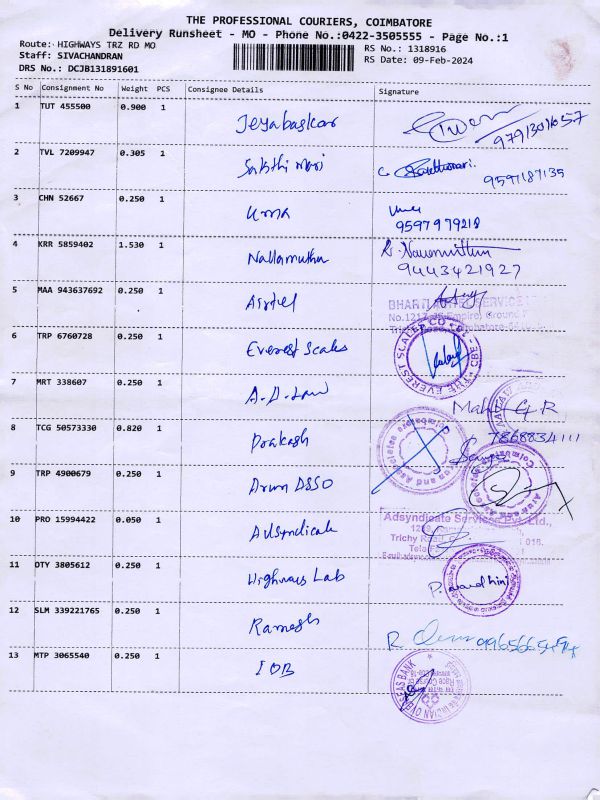 THE PROFESSIONAL COURIERS, COIMBATORE
Delivery Runsheet - MO - Phone No.:0422-3505555 - Page No.:1
Route: HIGHWAYS TRZ RD MO
RS No.: 1318916
Staff: SIVACHANDRAN
RS Date: 09-Feb-2024
DRS No.: DCJB131891601
S No Consignment No Weight PCS Consignee Details Signature
1 TUT 455500 0.900 1 Jeyabaskar
2 TVL 7209947 0.305 1 Sakthi Mari
9597187135
3 CHN 52667 0.250 1 Uma
Uma
9597979218
4 KRR 5859402 1.530 1 Nallamuthu
9443421927
5 MAA 943637692 0.250 1 Airtel
6 TRP 6760728 0.250 1 Everest Scales
THE EVEREST SCALES CO
CBE - 18
7 MRT 338607 0.250 1 A.D.Law
8 TCG 50573330 0.820 1 Prakash
7868834111
9 TRP 4900679 0.250 1 Arun ASSO
Coimbatore
10 PRO 15994422 0.050 1 AdSyndicate
Adsyndicate Services Pvt. Ltd.,
Trichy Road
11 OTY 3805612 0.250 1 Highways Lab
12 SLM 339221765 0.250 1 Ramesh
13 MTP 3065540 0.250 1 IOB
INDIAN OVERSEAS BANK